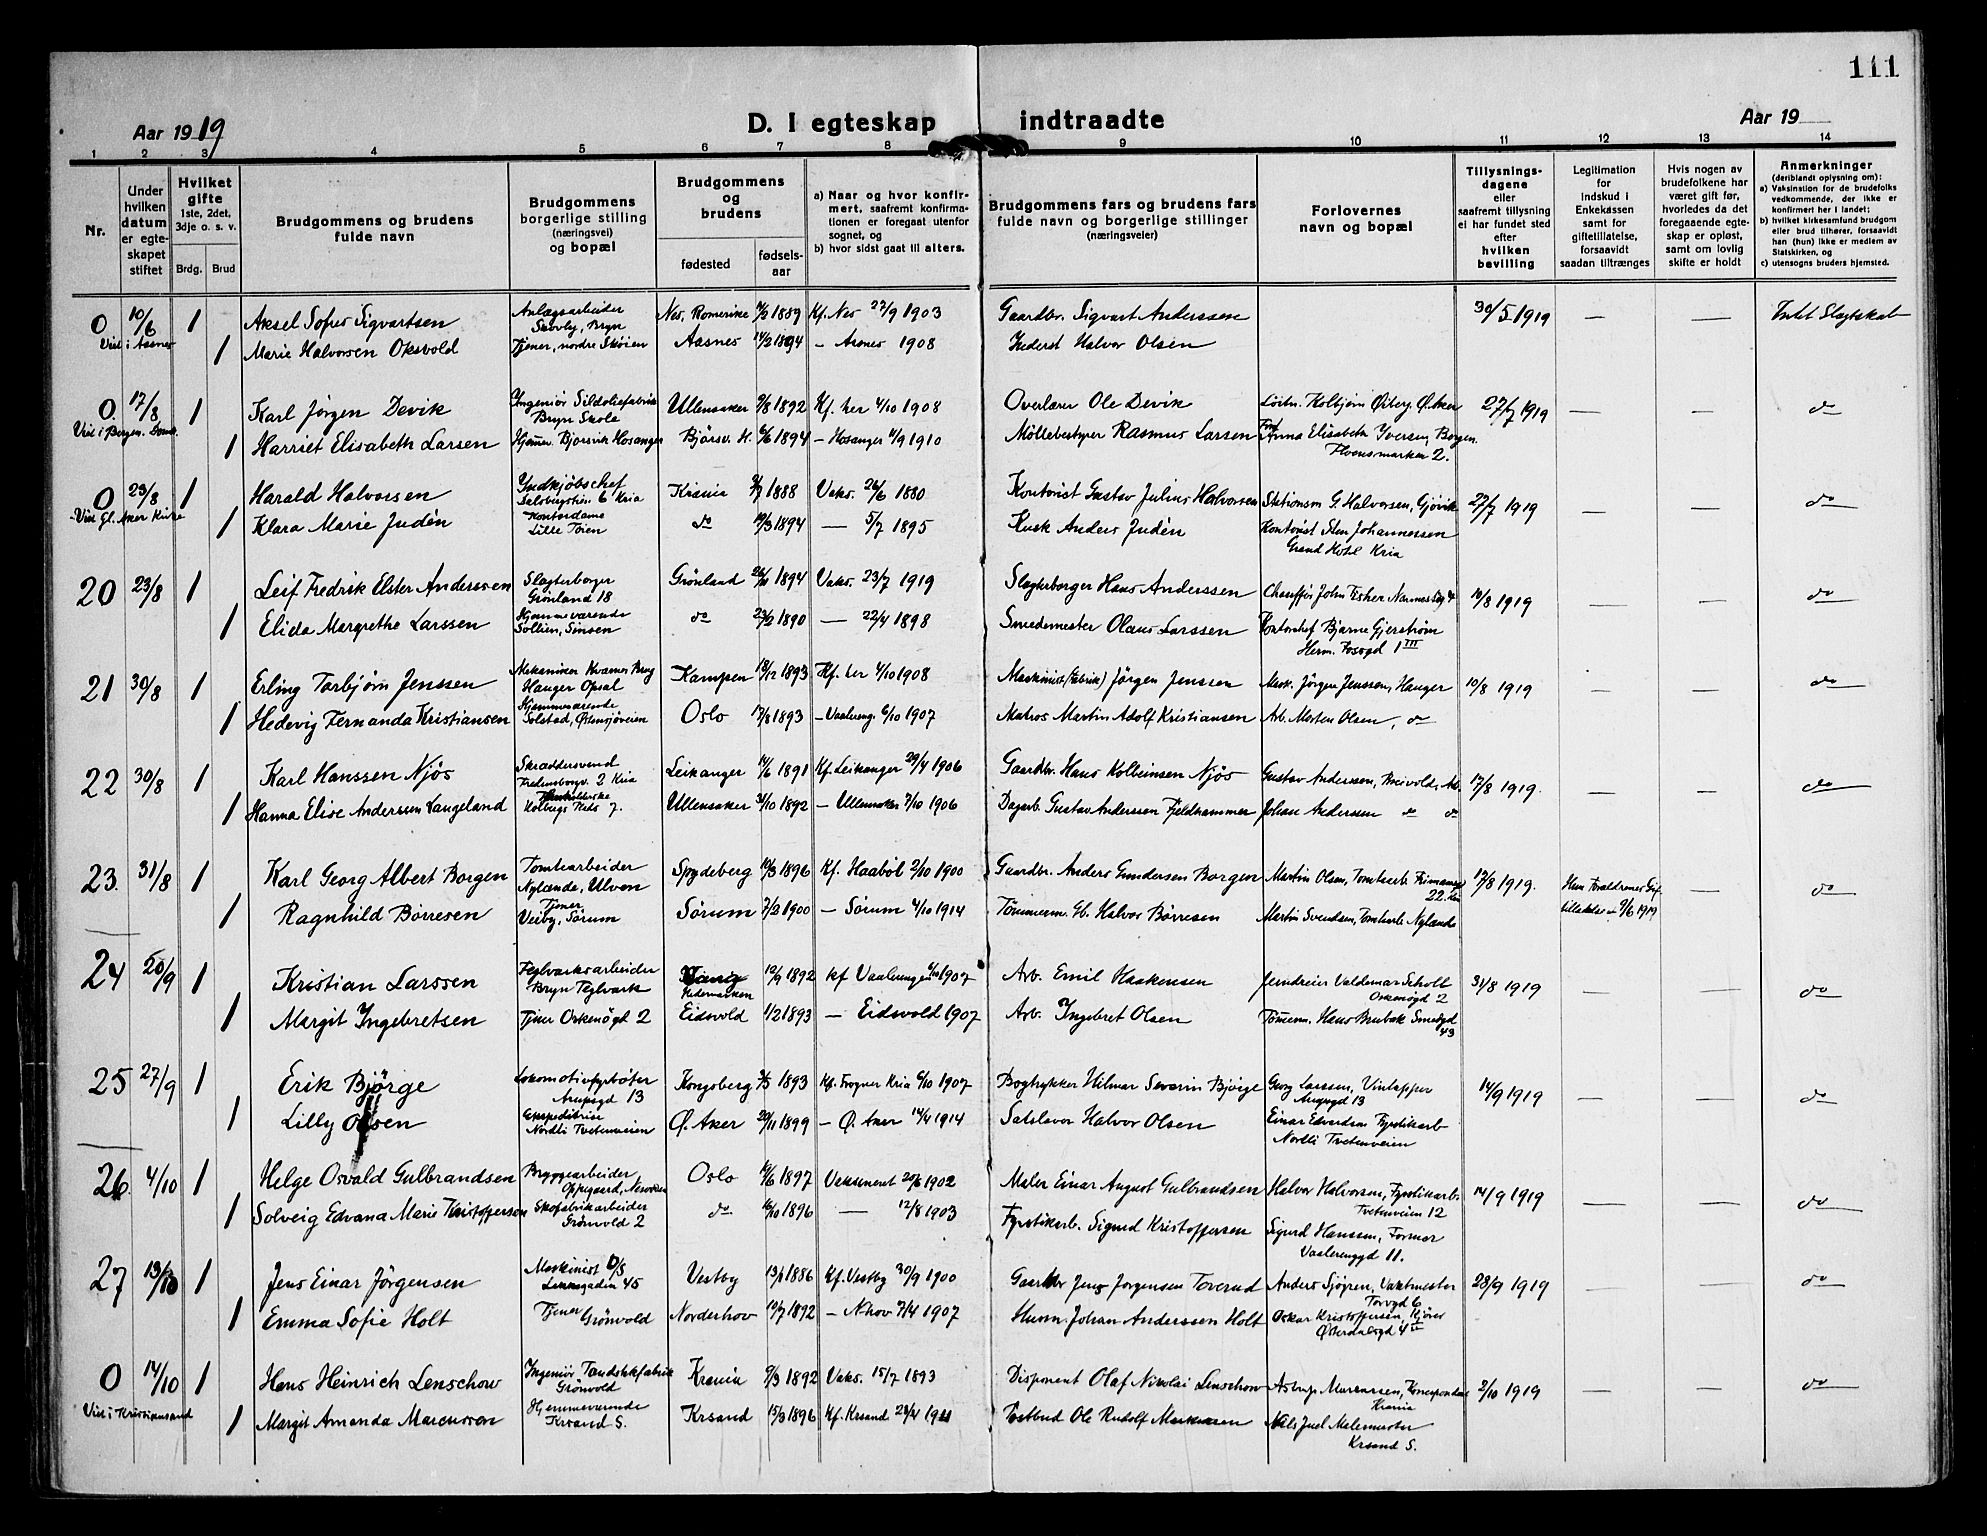 111
Aar 1919
D. I egteskap indtraadte
Aar 19
1 2 3 4 5 6 7 8 9 10 11 12 13 14
Nr.
Under hvilken datum er egteskapet stiftet
Hvilket gifte 1ste, 2det, 3dje o. s. v.
Brdg. Brud
Brudgommens og brudens fulde navn
Brudgommens borgerlige stilling (næringsvei) og bopæl
Brudgommens og brudens
fødested
fødselsaar
a) Naar og hvor konfirmert, saafremt konfirmationen er foregaat utenfor sognet, og
b) hvor sidst gaat til alters.
Brudgommens fars og brudens fars fulde navn og borgerlige stillinger (næringsveier)
Forlovernes navn og bopæl
Tillysningsdagene eller saafremt tillysning ei har fundet sted efter hvilken bevilling
Legitimation for indskud i Enkekassen samt for giftetillatelse, forsaavidt saadan tiltrænges
Hvis nogen av brudefolkene har været gift før, hvorledes da det foregaaende egteskap er opløst, samt om lovlig skifte er holdt
Anmerkninger (deriblandt oplysning om):
a) Vaksination for de brudefolks vedkommende, der ikke er konfirmert her i landet;
b) hvilket kirkesamfund brudgom eller brud tilhører, forsaavidt han (hun) ikke er medlem av Statskirken, og
c) utensogns bruders hjemsted.
0. 10/6 1 Aksel Sofus Sigvartsen Anlægsarbeider Skovly, Bryn Nes, Romerike 1889 Kf. Nes 27/9 1903 Gaardbr. Sigvart Anderssen 30/5 1919 — — Intet Slegtskab
Viet i Aasnes 1 Marie Halvorsen Oksvold Tjener, nordre Skøien Aasnes 14/2 1894 — Aasnes 1908 Inderst Halvor Olsen
0. 17/8 1 Karl Jørgen Devik Ingeniør Sildoliefabrik Bryn Skole Ullensaker 9/8 1892 Kf. her 4/10 1908 Overlærer Ole Devik Løitn. Kolbjørn Øiberg, Ø. Aker 27/7 1919 — — do
Viet i Bergen. Domk. 1 Harriet Elisabeth Larsen Hjem. Bjorsvik Hosanger Bjørsv. H. 6/6 1894 — Hosanger 11/9 1910 Møllebestyrer Rasmus Larsen Anna Elisabeth Iversen, Bergen 2.
0 23/8 1 Harald Halvorsen Indkjøbschef 6 Kria Krania 1888 Vaks. 26/6 1880 Kontorist Gustav Julius Halvorsen Stationsm G. Halvorsen, Gjøvik 27/7 1919 — — do
Viet Gl. Aker Kirke 1 Klara Marie Judén Kontordame Lille Tøien do 19/3 1894 — 5/7 1895 Kusk Anders Judén Kontorist Sten Johannessen Grand Hotel Kria
20 23/8 1 Leif Fredrik Elster Anderssen Slagterborger Grønland 18 Grønland 1894 Vaks. 23/7 1919 Slagterborger Hans Anderssen Chauffør John Esher 10/8 1919 — — do
1 Elida Margrethe Larssen Hjemmeværende Sollien, Sinsen do 23/2 1890 — 22/4 1898 Smedemester Olaus Larssen Kontorchef Bjarne Gjerstrøm Herm. Fossgd 1 III
21 30/8 1 Erling Torbjørn Jenssen Mekaniker Kværner Brug Hauger Opsal Kampen 18/12 1893 Kf. her 4/10 1908 Maskinist (Fabrik) Jørgen Jenssen Mask. Jørgen Jenssen, Hauger 10/8 1919 — — do
1 Hedevig Fernanda Kristiansen Hjemmeværende Solstad, Østensjøveien Oslo 17/8 1893 — Vaalereng. 6/10 1907 Matros Martin Adolf Kristiansen Arb. Morten Olsen, do
22 30/8 1 Karl Hanssen Njøs Skræddersvend 2 Kria Leikanger 14/6 1891 Kf. Leikanger 29/4 1906 Gaardbr. Hans Kolbeinsen Njøs Gustav Anderssen, 17/8 1919. — — do
1 Hanna Elise Anderssen Langeland 7. Ullensaker 31/10 1892 — Ullensaker 7/10 1906 Dagarb. Gustav Anderssen Fjeldhammer Johan Anderssen do do
23. 31/8 1 Karl Georg Albert Borgen Tomtearbeider Nylænde, Ulven Spydeberg 10/3 1896 Kf. Haabøl 2/10 1900 Gaardbr. Anders Gundersen Borgen Martin Olsen, Tomtearb. 22. 17/8 1919. — do
1 Ragnhild Børresen Tjener Veiby, Sørum Sørum 7/2 1900 — Sørum 4/10 1914 Tømmerm. Halvor Børresen Martin Svendsen, Tomtearb. Nylænde 9/6 1919
24 20/9 1 Kristian Larssen Teglverksarbeider Bryn Teglverk Hedemarken 12/9 1892 Kf Vaalerengen 1907 Arb. Emil Haakensen Jerndreier Valdemar Scholt Orkenøgd 2 31/8 1919 — — do
1 Margit Ingebretsen Tjener Orkenøgd 2 Eidsvold 1/2 1893 — Eidsvold 1907 Arb. Ingebret Olsen Tømerm. Hans Brubak Smedgd 43
25 27/9 1 Erik Bjørge Lokomotivfyrbøter Arupsgd 13 Kongsberg 1893 Kf. Frogner Kria 6/10 1907 Bogtrykker Hilmar Severin Bjørge Georg Larssen, Vintapper Arupsgd 13 14/9 1919 — — do
1 Lilly Olsen Ekspeditrice Nordli Tvetenveien Ø. Aker 20/11 1899 — Ø. Aker 14/4 1914 Halvor Olsen Einar Edvardsen Fyrstikarb Nordli Tvetenveien
26. 4/10 1 Helge Osvald Gulbrandsen Bryggearbeider Oppegaard, Oslo 1897 Vaksineret 20/6 1902 Maler Einar August Gulbrandsen Halvor Halvorsen, Fyrstikarb. Tvetenveien 12 14/9 1919 — — do
1 Solveig Edvana Marie Kristoffersen Skofabrikarbeider Grønvold 2 do 16/10 1896 — 12/8 1903 Fyrstikarb. Sigurd Kristoffersen Sigurd Hanssen, Former Vaalerenggd 11.
27 13/10 1 Jens Einar Jørgensen Maskinist O/S 45 Vestby 13/1 1886 Kf. Vestby 30/9 1900 Gaardbr Jens Jorgensen Toverud Anders Sjøgren, Vaktmester Torvgd 6 28/9 1919 — — do
1 Emma Sofie Holt Tjener Grønvold Norderhov 19/7 1892 — Nhov 7/4 1907 Husm. Johan Anderssen Holt Oskar Kristoffersen, Kjører Østerdalsgd 4
0 14/10 1 Hans Heinrich Lenschow Ingeniør Tændstikfabrik Grønvold Krania 9/3 1892 Vaks. 15/7 1893 Disponent Olaf Nikolai Lenschow Astrup Marcussen, Korrespondent Krania 2/10 1919 — — do
Viet i Kristiansand 1 Margit Amanda Marcussen Hjemmeværende Krsand S. Krsand 15/3 1896 Kf. Krsand 23/4 1911 Postbud Ole Rudolf Markussen Nils Juel Malermester Krsand S.